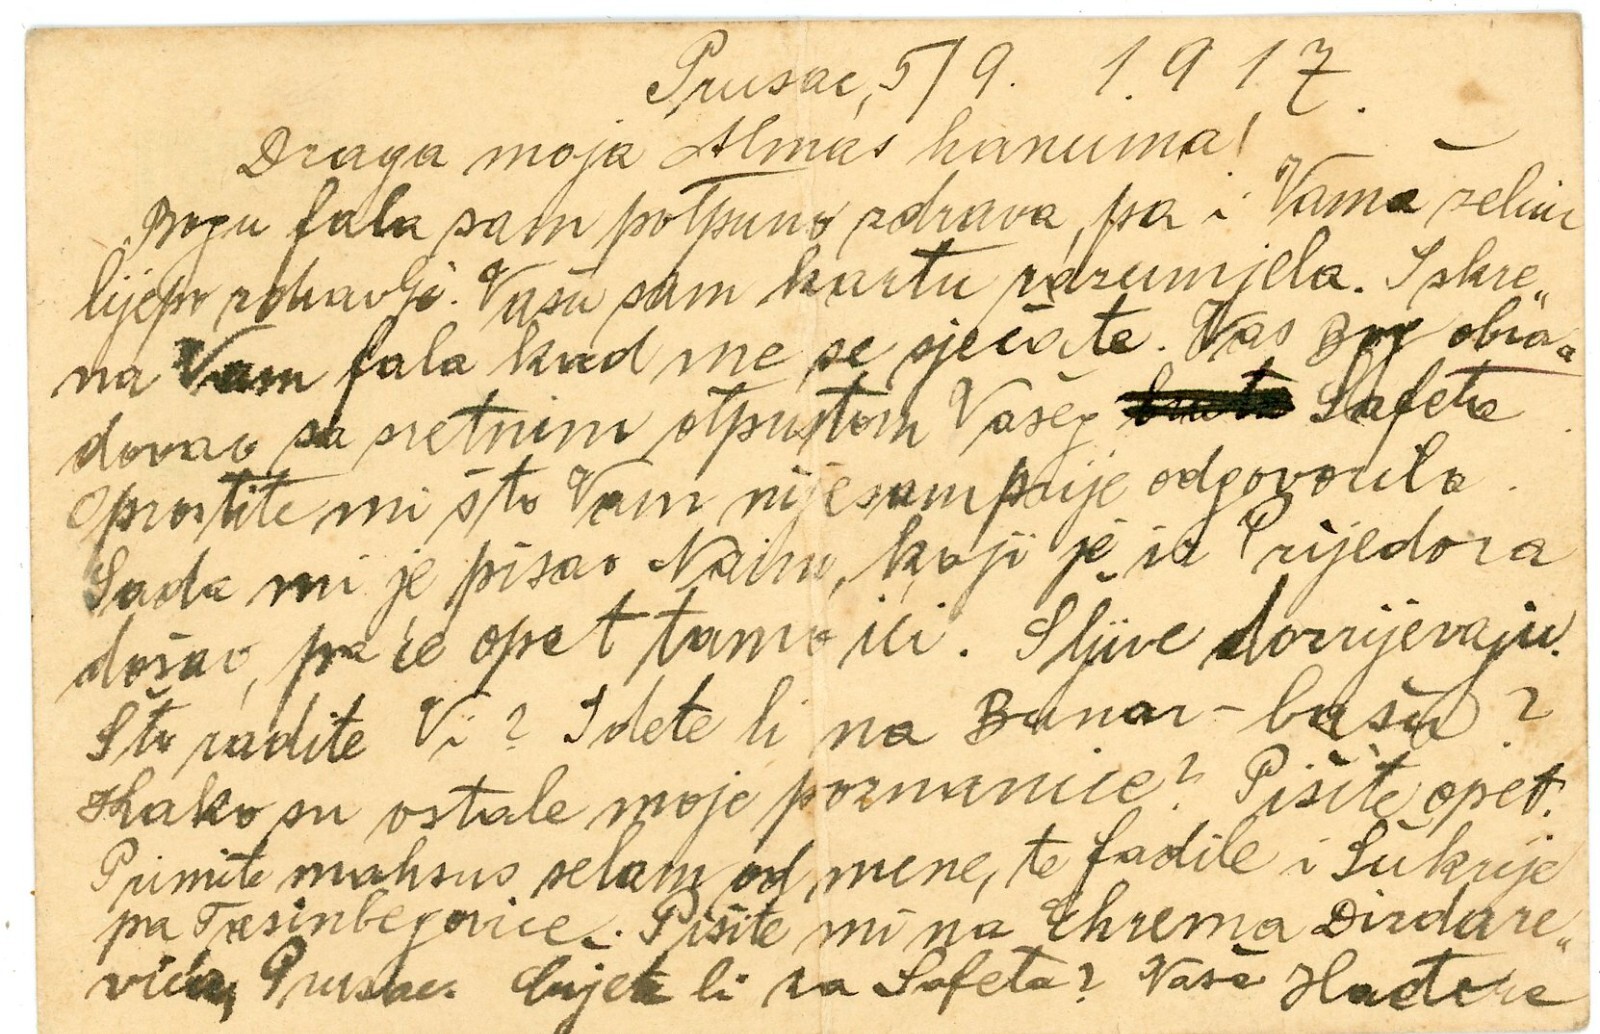 Prusac, 5/9. 1.9 1 7.
Draga moja Almas hanuma!
Bogu fala sam potpuno zdrava, pa i Vama želim
lijepo zdravlje. Vašu sam kartu razumjela. Iskre„
na Vam fala kad me se sjećate. Vas Bog obra„
dovao sa sretnim otpustom Vašeg Safeta
oprostite mi što Vam nijesam prije odgovorila.
Sada mi je pisao Naim, koji je iz Prijedora
došao, pa će opet tamo ići. Šljive dozrijevaju.
Što radite Vi? Idete li na Bunar-bašu?
Kako su ostale moje poznanice? Pišite opet.
Primite mahsus selam od mene, te Fadile i Šukrije
pa Tasinbegovice. Pišite mi na Ehrema Dizdare„
vića, Prusac. Čujete li za Safeta? Vaša